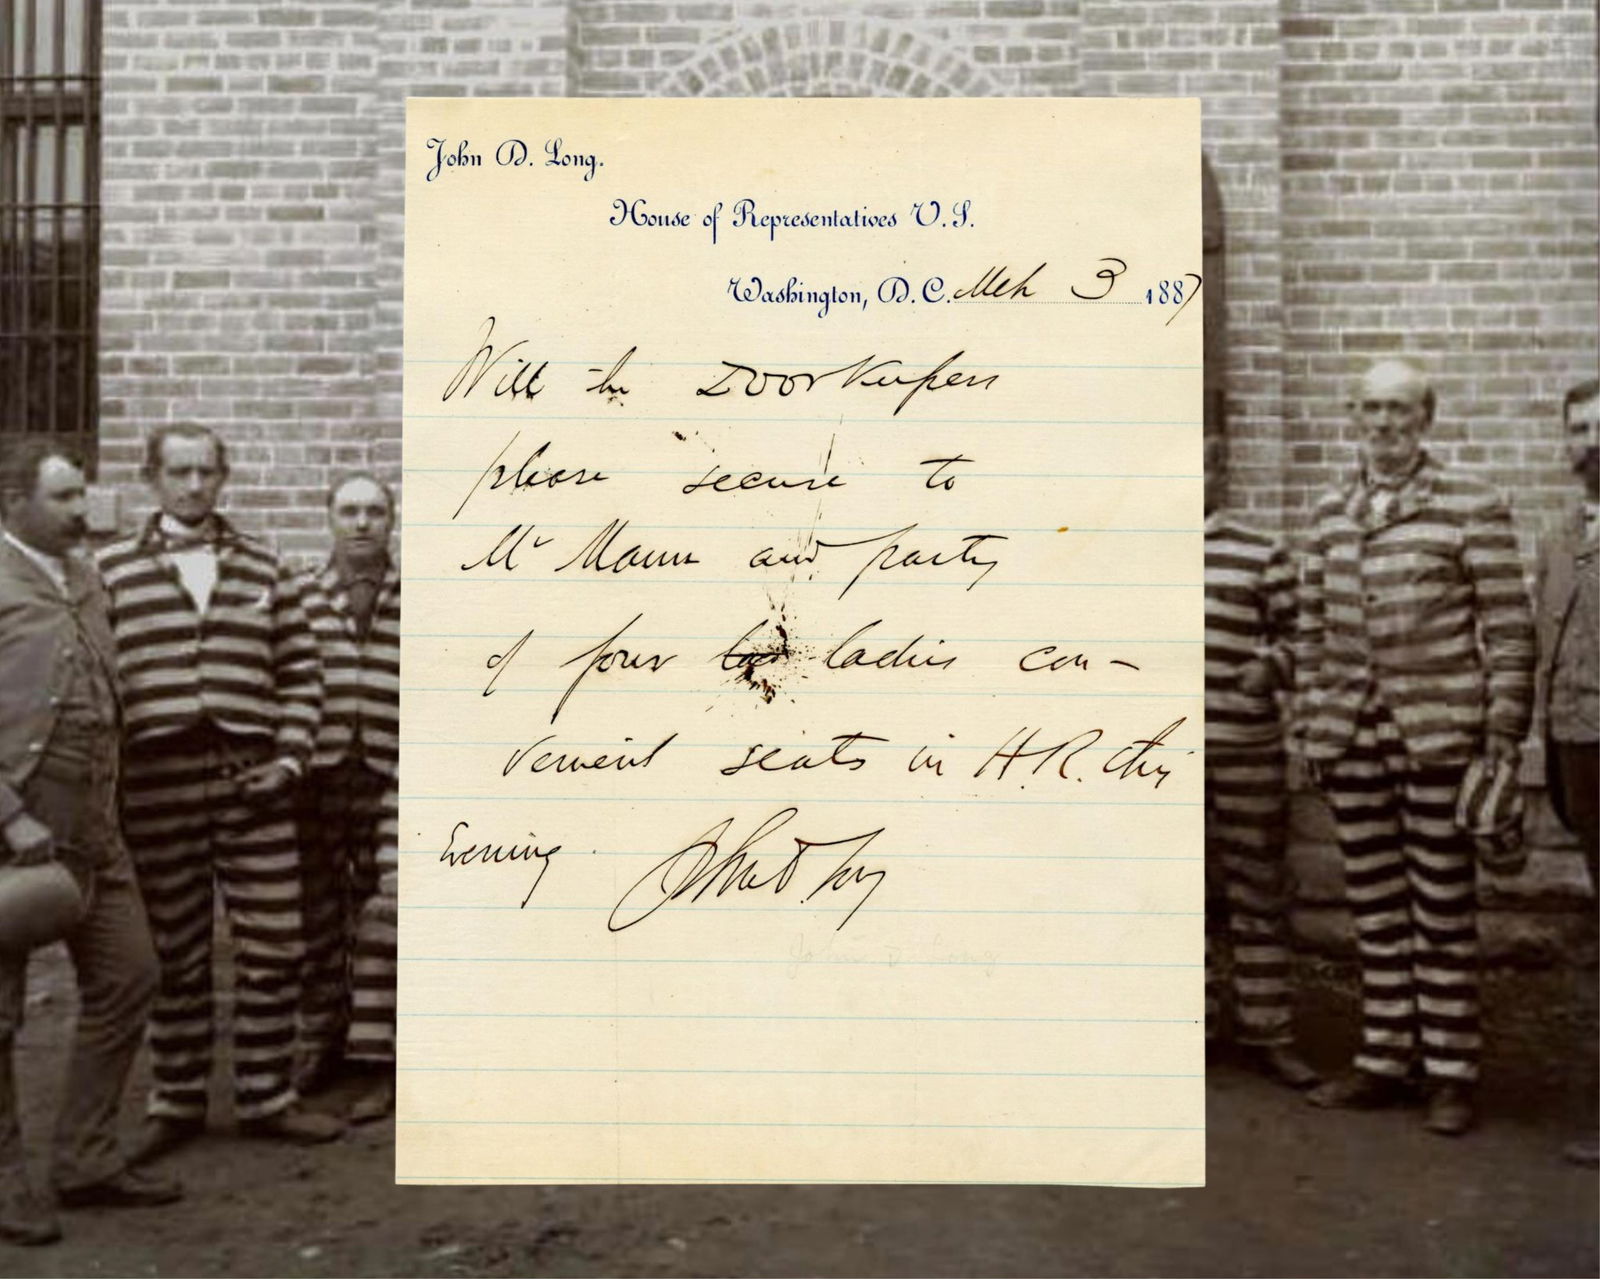 John D. Long.
House of Representatives U.S.
Washington, D.C. Mch 3 1887
Will the Doorkeepers
please secure to
Mr Mann and party
of four lad ladies con-
venient seats in H.R. this
Evening.
John D. Long
John D Long